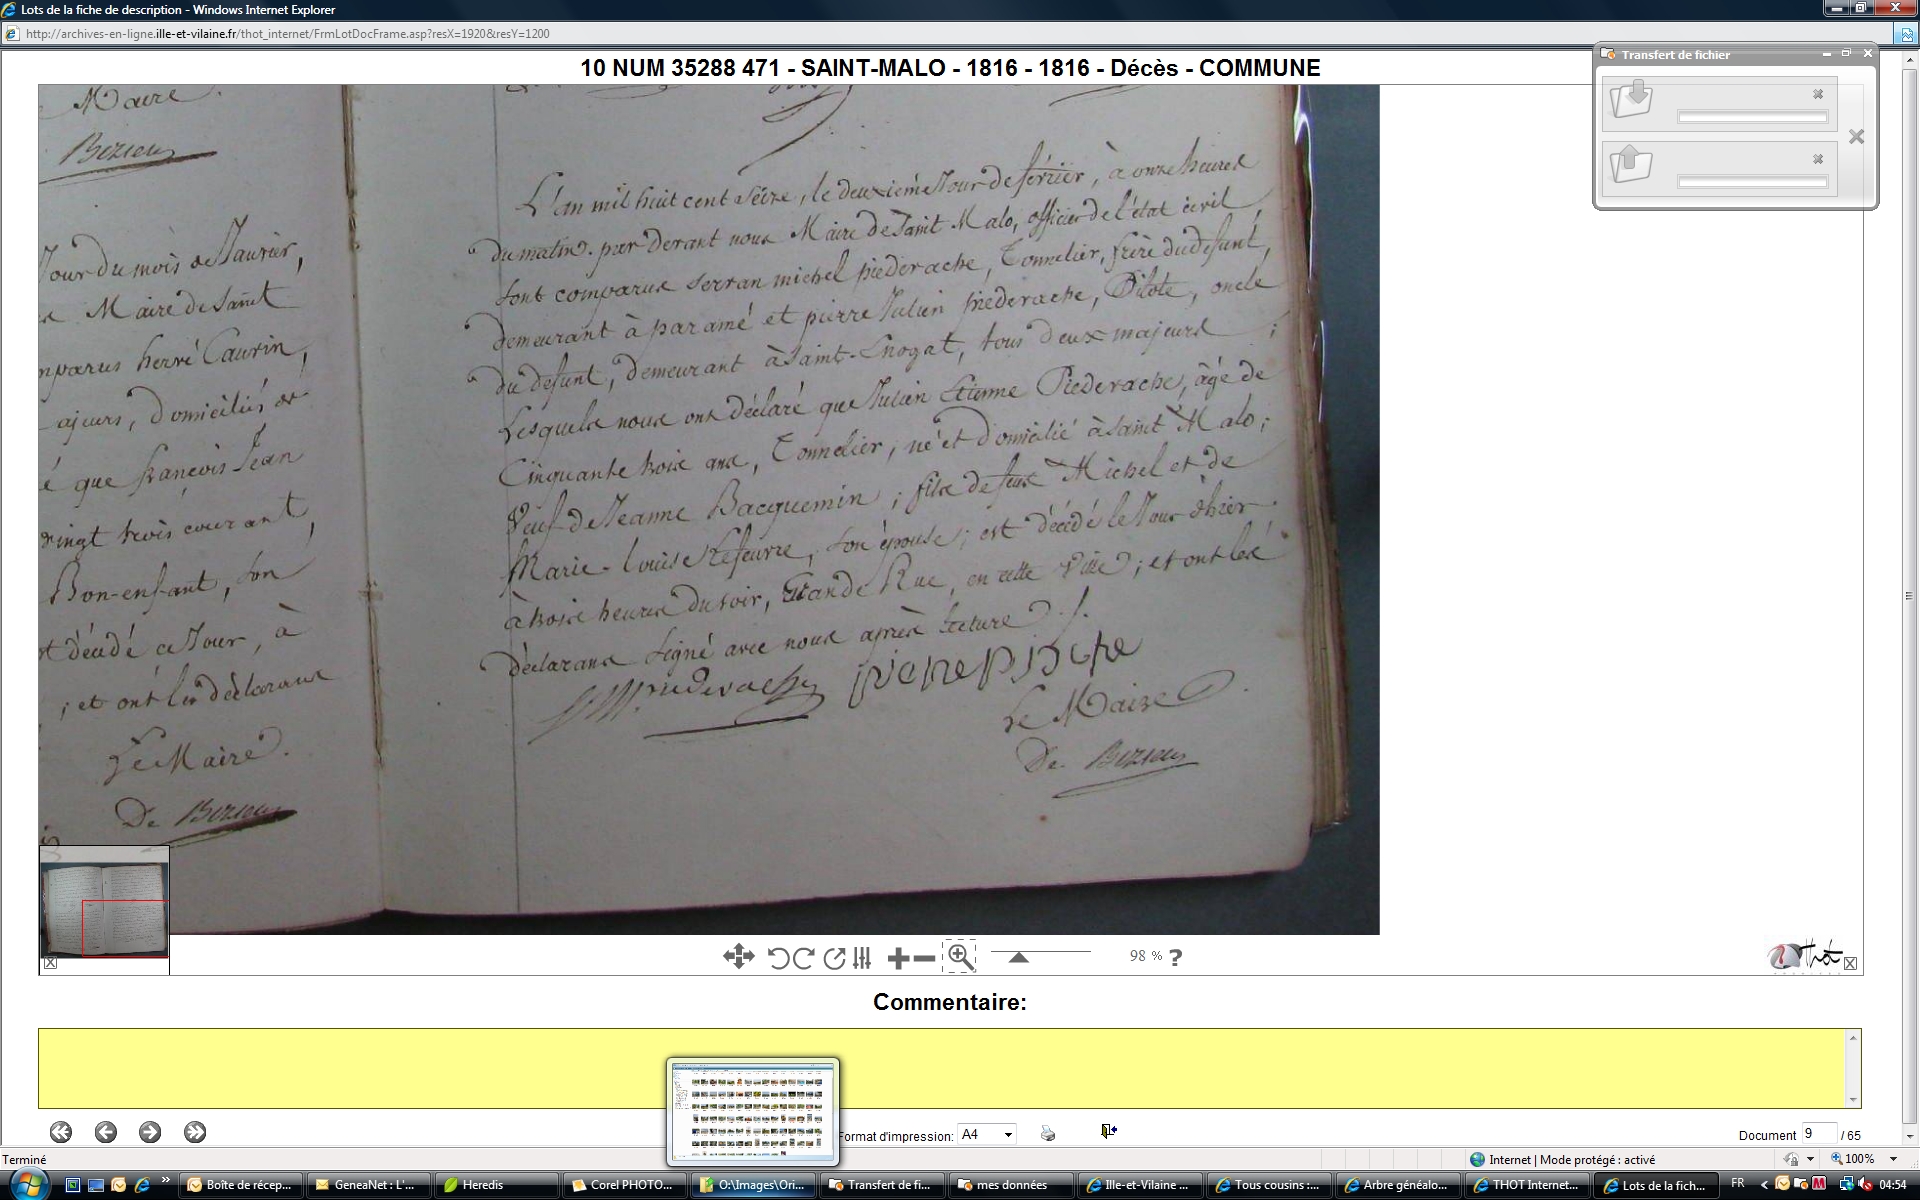 Lots de la fiche de description - Windows Internet Explorer
http://archives-en-ligne.ille-et-vilaine.fr/thot_internet/FrmLotDocFrame.asp?resX=1920&resY=1200
Transfert de fichier
10 NUM 35288 471 - SAINT-MALO - 1816 - 1816 - Décès - COMMUNE
Maire.
Bizien
Jour du mois de Janvier,
Maire de Saint
mparus hervé Caurin,
ajeurs, domiciliés de
é que françois Jean
vingt trois courant,
Bon-enfant, son
st décédé ce Jour, à
; et ont les déclarans
Le Maire.
De Bizien
L'an mil huit cent Seize, le deuxième Jour de février, à onze heures
du matin. par devant nous Maire de Saint Malo, officier de l'état civil,
sont comparus servan michel piedevache, Tonnelier, frère du defunt,
demeurant à paramé et pierre Julien piedevache, Pilote, oncle
du defunt, demeurant à Saint-Enogat, tous deux majeurs ;
Lesquels nous ont déclaré que Julien Etienne Piedevache, âgé de
Cinquante trois ans, Tonnelier, né et domicilié à Saint Malo ;
Veuf de Jeanne Bacquemin ; fils de feus Michel et de
Marie-Louise Lefeuvre, son épouse ; est décédé le Jour d'hier
à trois heures du soir, Grande Rue, en cette Ville ; et ont les
déclarans signé avec nous après lecture ./.
Le Maire
De Bizien
98 %
?
Thot
Commentaire:
Format d'impression:
A4
Document 9 / 65
Terminé
Internet | Mode protégé : activé
100%
Boîte de récep...
GeneaNet : L'...
Heredis
Corel PHOTO...
O:\Images\Ori...
Transfert de fi...
mes données
Ille-et-Vilaine ...
Tous cousins :...
Arbre généalo...
THOT Internet...
Lots de la fich...
FR
04:54